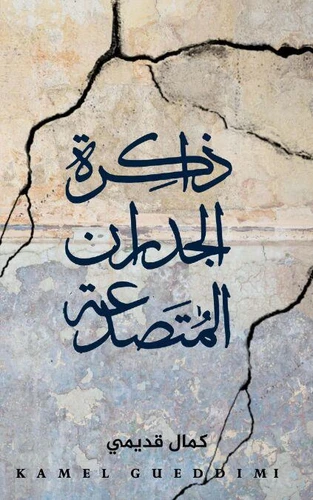 ذاكرة
الجدران
المُتَصدعة
كمال قديمي
KAMEL GUEDDIMI